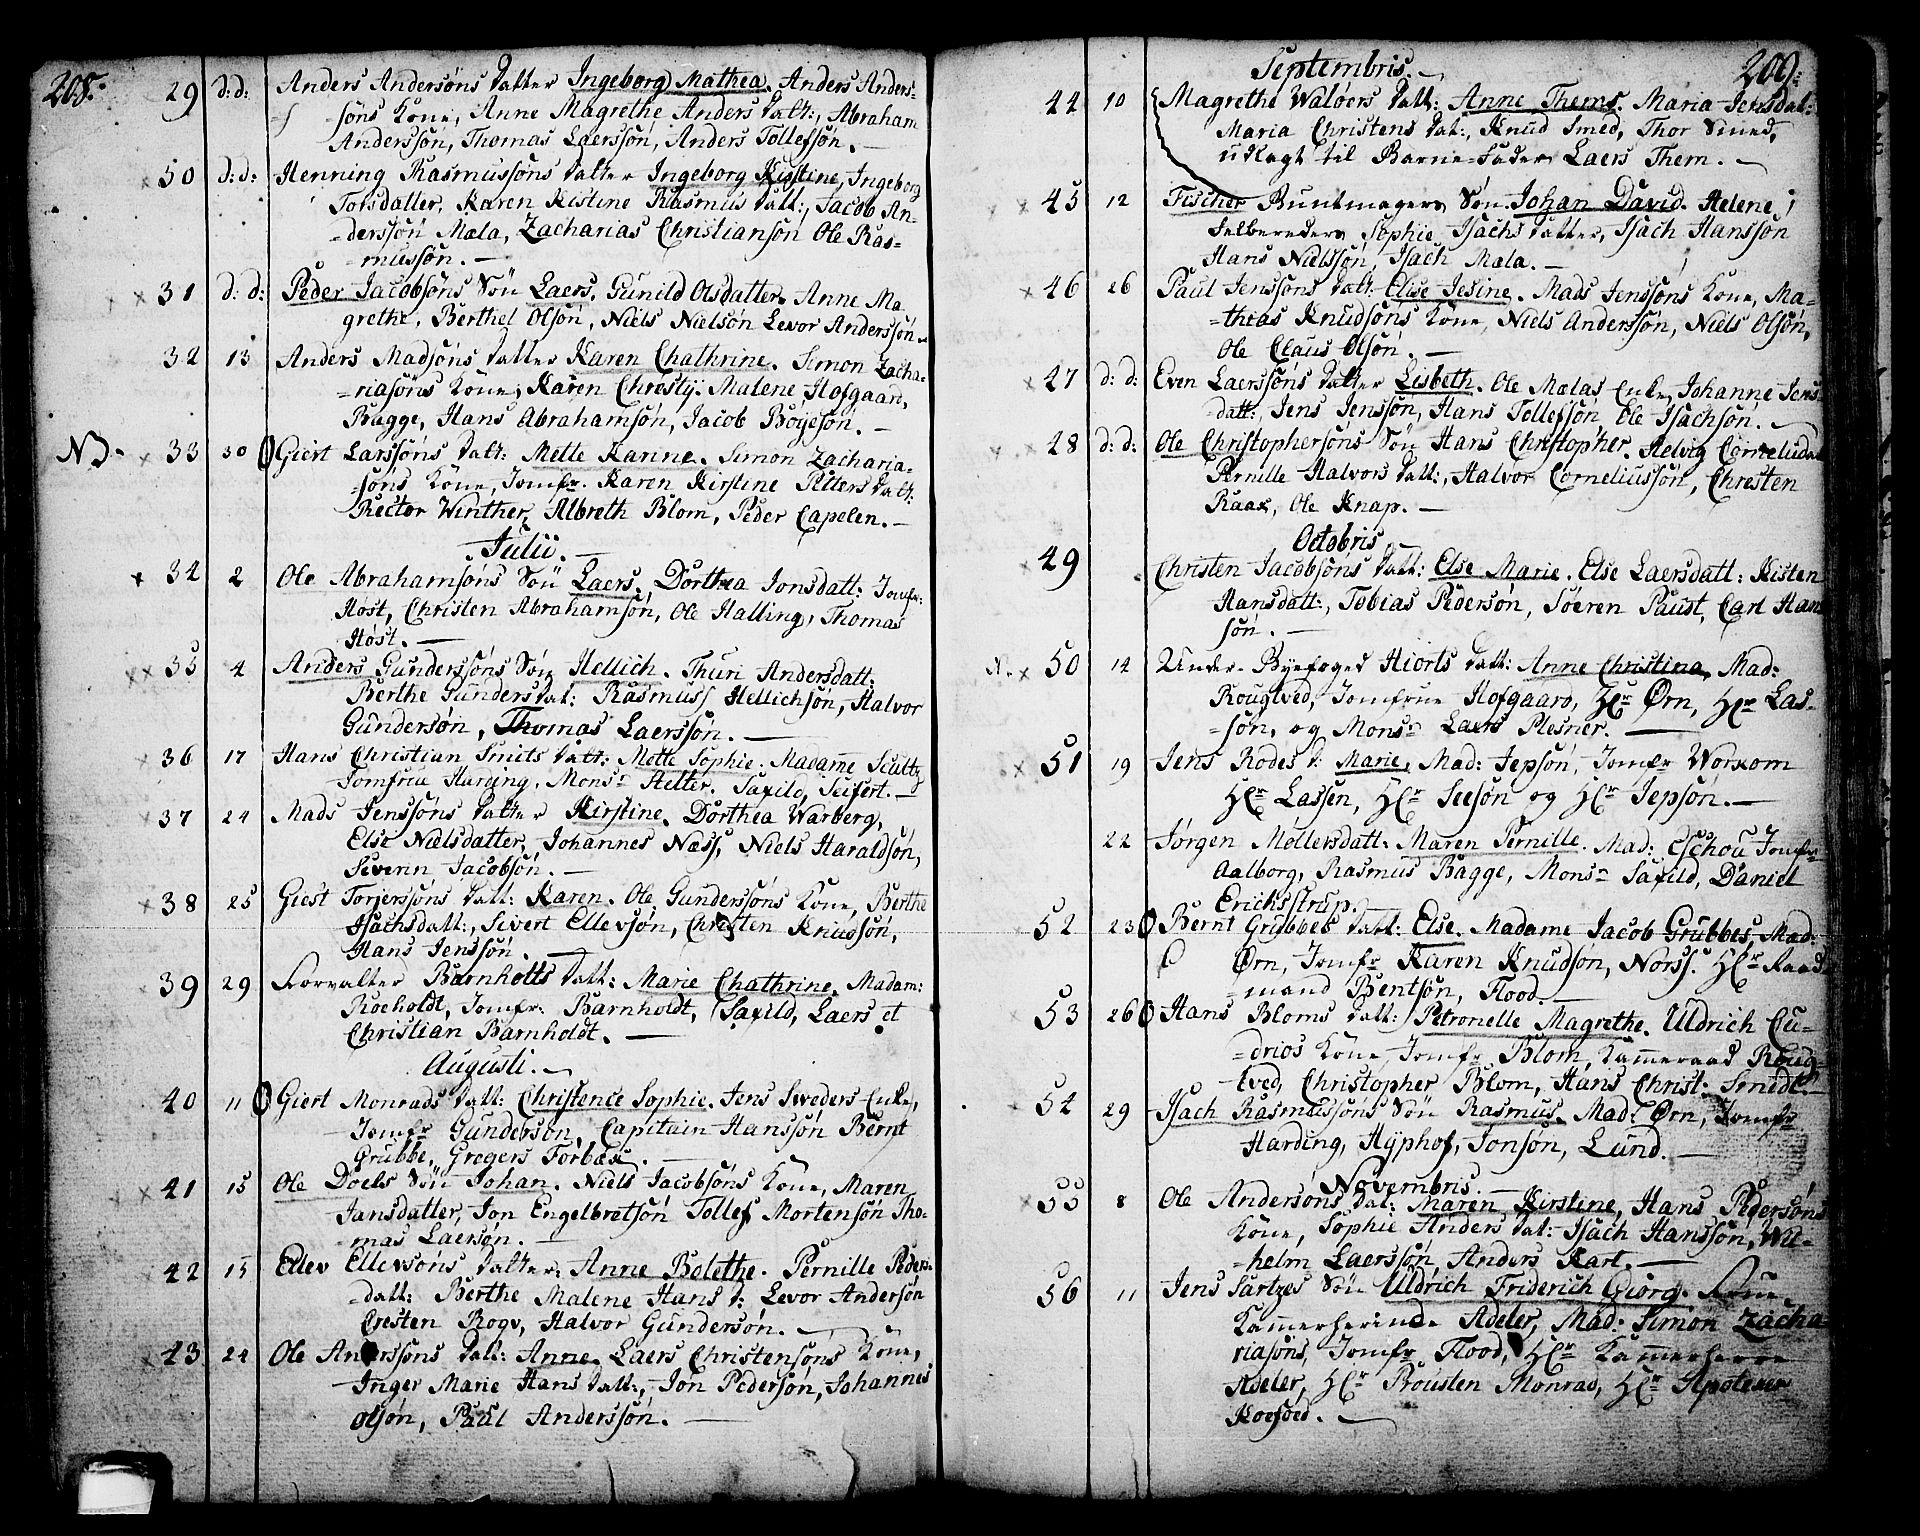 208.
29 d: d: Anders Andersøns Datter Ingeborg Mathea. Anders Anders-
søns Kone, Anne Magrethe Anders Datt:, Abraham
Anderssøn, Thomas Laerssøn, Anders Tollefsøn. —
× 50 d: d: Henning Rasmussøns Datter Ingeborg Kistine, Ingeborg
Torsdatter, Karen Kistine Rasmus Datt:, Jacob An-
derssøn Mæla, Zacharias Christiansøn Ole Ras-
mussøn. —
× × 31 d: d: Peder Jacobsøns Søn Laers. Gunild Olsdatter, Anne Ma
grethe, Berthel Olsøn, Niels Nielsøn Levor Anderssøn.
32 13 Anders Madsøns Datter Karen Chathrine. Simon Zacha-
riasøns Kone, Karen Christy: Malene Hofgaard,
Bagge, Hans Abrahamsøn, Jacob Boyesøn. —
NB. × 33 30 Giert Larssøns Datt: Mette Kanne. Simon Zacharia-
søns Kone, Jomfr. Karen Kirstine Petters Datt:
Rector Winther, Albreth Blom, Peder Capelen. —
Julii. —
× 34 2 Ole Abrahamsøns Søn Laers. Dorthea Jonsdatt: Jomfr:
Høst, Christen Abrahamsøn, Ole Halling, Thomas
Høst. —
× × 35 4 Anders Gunderssøns Søn Hellich. Thuri Andersdatt.
Berthe Gunders Dat: Rasmuss Hellichsøn, Halvor
Gundersøn, Thomas Laerssøn. —
× 36 17 Hans Christian Smits Datt: Mette Sophie. Madame Scultz
Jomfrue Harding, Monsr Helter. Saxild, Seifert. —
× 37 24 Mads Jenssøns Datter Kirstine. Dorthea Warberg,
Else Nælsdatter, Johannes Næss, Niels Haraldsøn,
Severin Jacobsøn. —
× 38 25 Giest Torjerssøns Datt: Karen. Ole Gunderssøns Kone, Berthe
Isachsdatt:, Sivert Ellevsøn, Christen Knudsøn,
Hans Jenssøn. —
× 39 29 Forvalter Barnholts Datt: Marie Chathrine. Madam:
Rocholdt, Jomfr: Barnholdt, Saxild, Laers et
Christian Barnholdt. —
Augusti. —
40 11 Giert Monrads Datt: Christence Sophie. Jens Sweders Enke,
Jomfr Gundersøn, Capitain Hanssøn Bernt
Grubbe, Gregers Forbæs. —
× 41 15 Ole Doels Søn Johan. Niels Jacobsøns Kone, Maren
Jansdatter, Jon Engelbretsøn Tollef Mortensøn Tho-
mas Laersøn. —
× 42 15 Ellev Ellevsøns Datter: Anne Bolethe. Pernille Peders-
datt: Berthe Malene Hans D: Levor Andersøn
Cresten Rogv, Halvor Gundersøn. —
× 43 24 Ole Anderssøns Datt: Anne. Laers Christensøns Kone,
Inger Marie Hans Datt:, Jon Pedersøn, Johannes
Olsøn, Paul Anderssøn. —
209.
Septembris. —
44 10 Magrethe Waløers Datt: Anne Thems. Maria Jensdat:
Maria Christens Dat:, Knud Smed, Thor Smed,
udlagt til Barne-Fader Laers Them. —
× 45 12 Fischer Buntmagers Søn Johan David. Helene
Felbereders Sophie Isachs Datter, Isach Hanssøn
Hans Nielssøn, Isach Mæla. —
× 46 26 Paul Jenssøns Datt: Elise Jesine. Mads Jenssøns Kone, Ma-
thias Knudsøns Kone, Niels Anderssøn, Niels Olsøn,
Ole Claus Olsøn. —
× 47 d: d: Even Laerssøns Datter Lisbeth. Ole Mælas Enke, Johanne Jens-
datt: Jens Jenssøn, Hans Tollefssøn Ole Isachsøn. —
× 48 d: d: Ole Christophersøns Søn Hans Christopher. Helvig Corneliidat
Pernille Halvors Datt:, Halvor Corneliussøn, Chresten
Raax, Ole Knap. —
Octobris —
× 49 Christen Jacobsøns Datt: Else Marie. Else Laersdatt: Kisten
Hansdatt:, Tobias Pedersøn, Søeren Paust, Carl Han
søn. —
N. × 50 14 Under-Byefoged Hiorts Datt: Anne Christina. Mad:
Rougtved, Jomfrue Hofgaard, Hr Ørn, Hr Las-
søn, og Monsr Laers Plesner. —
× 51 19 Jens Rodes D: Marie. Mad: Jepsøn, Jomfr Worxom
Hr Lassen, Hr Seesøn og Hr Jepsøn. —
22 Jørgen Møllersdatt: Maren Pernille. Mad: Eschou Jomfr
Aalborg, Rasmus Bagge, Monsr Saxild, Daniel
Erichsstrup. —
× 52 23 Bernt Grubbes Datt: Else. Madame Jacob Grubbes, Mad:
Ørn, Jomfr Karen Knudsøn, Norss. Hr Raad-
mand Bentsøn, Flood. —
× 53 26 Hans Bloms Datt: Petronelle Magrethe. Uldrich Cu-
drios Kone, Jomfr Blom, Kammeraad Roug-
tved, Christopher Blom, Hans Christ: Smidt. —
× 54 29 Isach Rasmussøns Søn Rasmus. Mad: Ørn, Jomfr
Harding, Hyphof, Jonsøn, Lund. —
Novembris. —
× 55 8 Ole Andersøns Dat: Maren Kirstine. Hans Pedersøns
Kone, Sophie Anders Dat: Isach Hanssøn, Wil-
helm Laerssøn, Anders Kart. —
56 11 Jens Sartzes Søn Uldrich Friderich Giorg. Frue
Kammerherinde Adeler, Mad: Simon Zacha
riasøns, Jomfr Flood, Hr Kammerherre
Adeler, Hr Prousten Monrad, Hr Apoteker
Koefoed. —